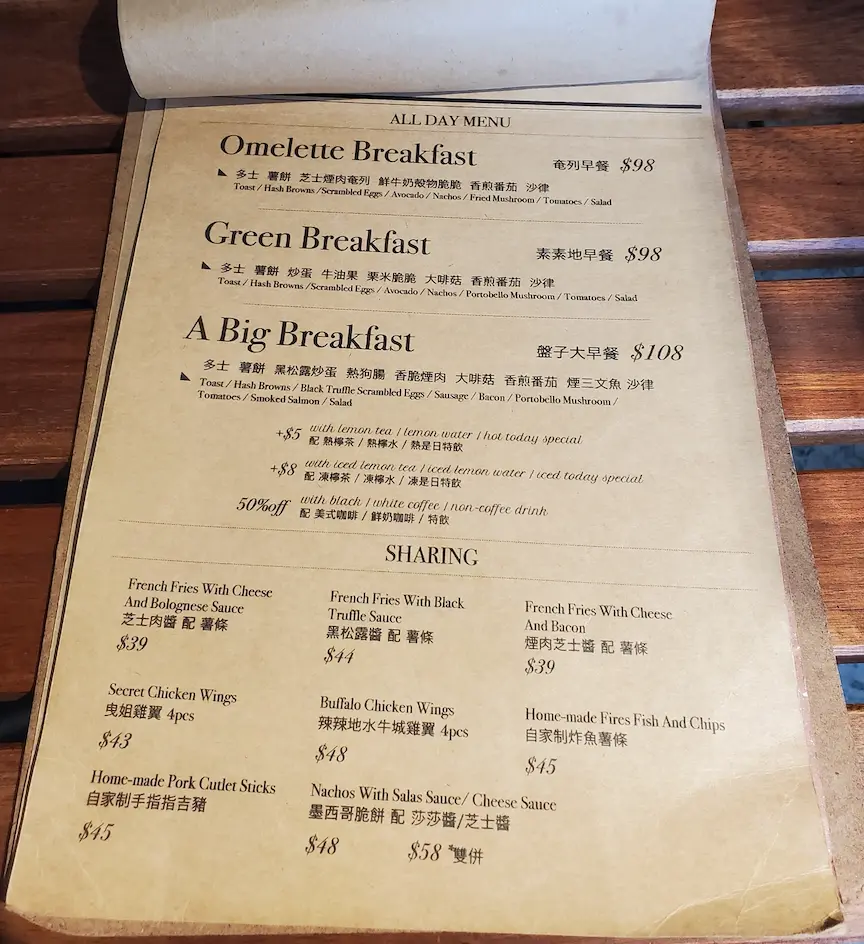 ALL DAY MENU
Omelette Breakfast 奄列早餐 $98
多士 薯餅 芝士煙肉奄列 鮮牛奶殼物脆脆 香煎番茄 沙律
Toast / Hash Browns /Scrambled Eggs / Avocado / Nachos / Fried Mushroom / Tomatoes / Salad
Green Breakfast 素素地早餐 $98
多士 薯餅 炒蛋 牛油果 栗米脆脆 大啡菇 香煎番茄 沙律
Toast / Hash Browns /Scrambled Eggs / Avocado / Nachos / Portobello Mushroom / Tomatoes / Salad
A Big Breakfast 盤子大早餐 $108
多士 薯餅 黑松露炒蛋 熱狗腸 香脆煙肉 大啡菇 香煎番茄 煙三文魚 沙律
Toast / Hash Browns / Black Truffle Scrambled Eggs / Sausage / Bacon / Portobello Mushroom /
Tomatoes / Smoked Salmon / Salad
+$5 with lemon tea / lemon water / hot today special
配 熱檸茶 / 熱檸水 / 熱是日特飲
+$8 with iced lemon tea / iced lemon water / iced today special
配 凍檸茶 / 凍檸水 / 凍是日特飲
50%off with black / white coffee / non-coffee drink
配 美式咖啡 / 鮮奶咖啡 / 特飲
SHARING
French Fries With Cheese
And Bolognese Sauce
芝士肉醬 配 薯條
$39
French Fries With Black
Truffle Sauce
黑松露醬 配 薯條
$44
French Fries With Cheese
And Bacon
煙肉芝士醬 配 薯條
$39
Secret Chicken Wings
曳姐雞翼 4pcs
$43
Buffalo Chicken Wings
辣辣地水牛城雞翼 4pcs
$48
Home-made Fires Fish And Chips
自家制炸魚薯條
$45
Home-made Pork Cutlet Sticks
自家制手指指吉豬
$45
Nachos With Salas Sauce/ Cheese Sauce
墨西哥脆餅 配 莎莎醬/芝士醬
$48 $58 *雙併